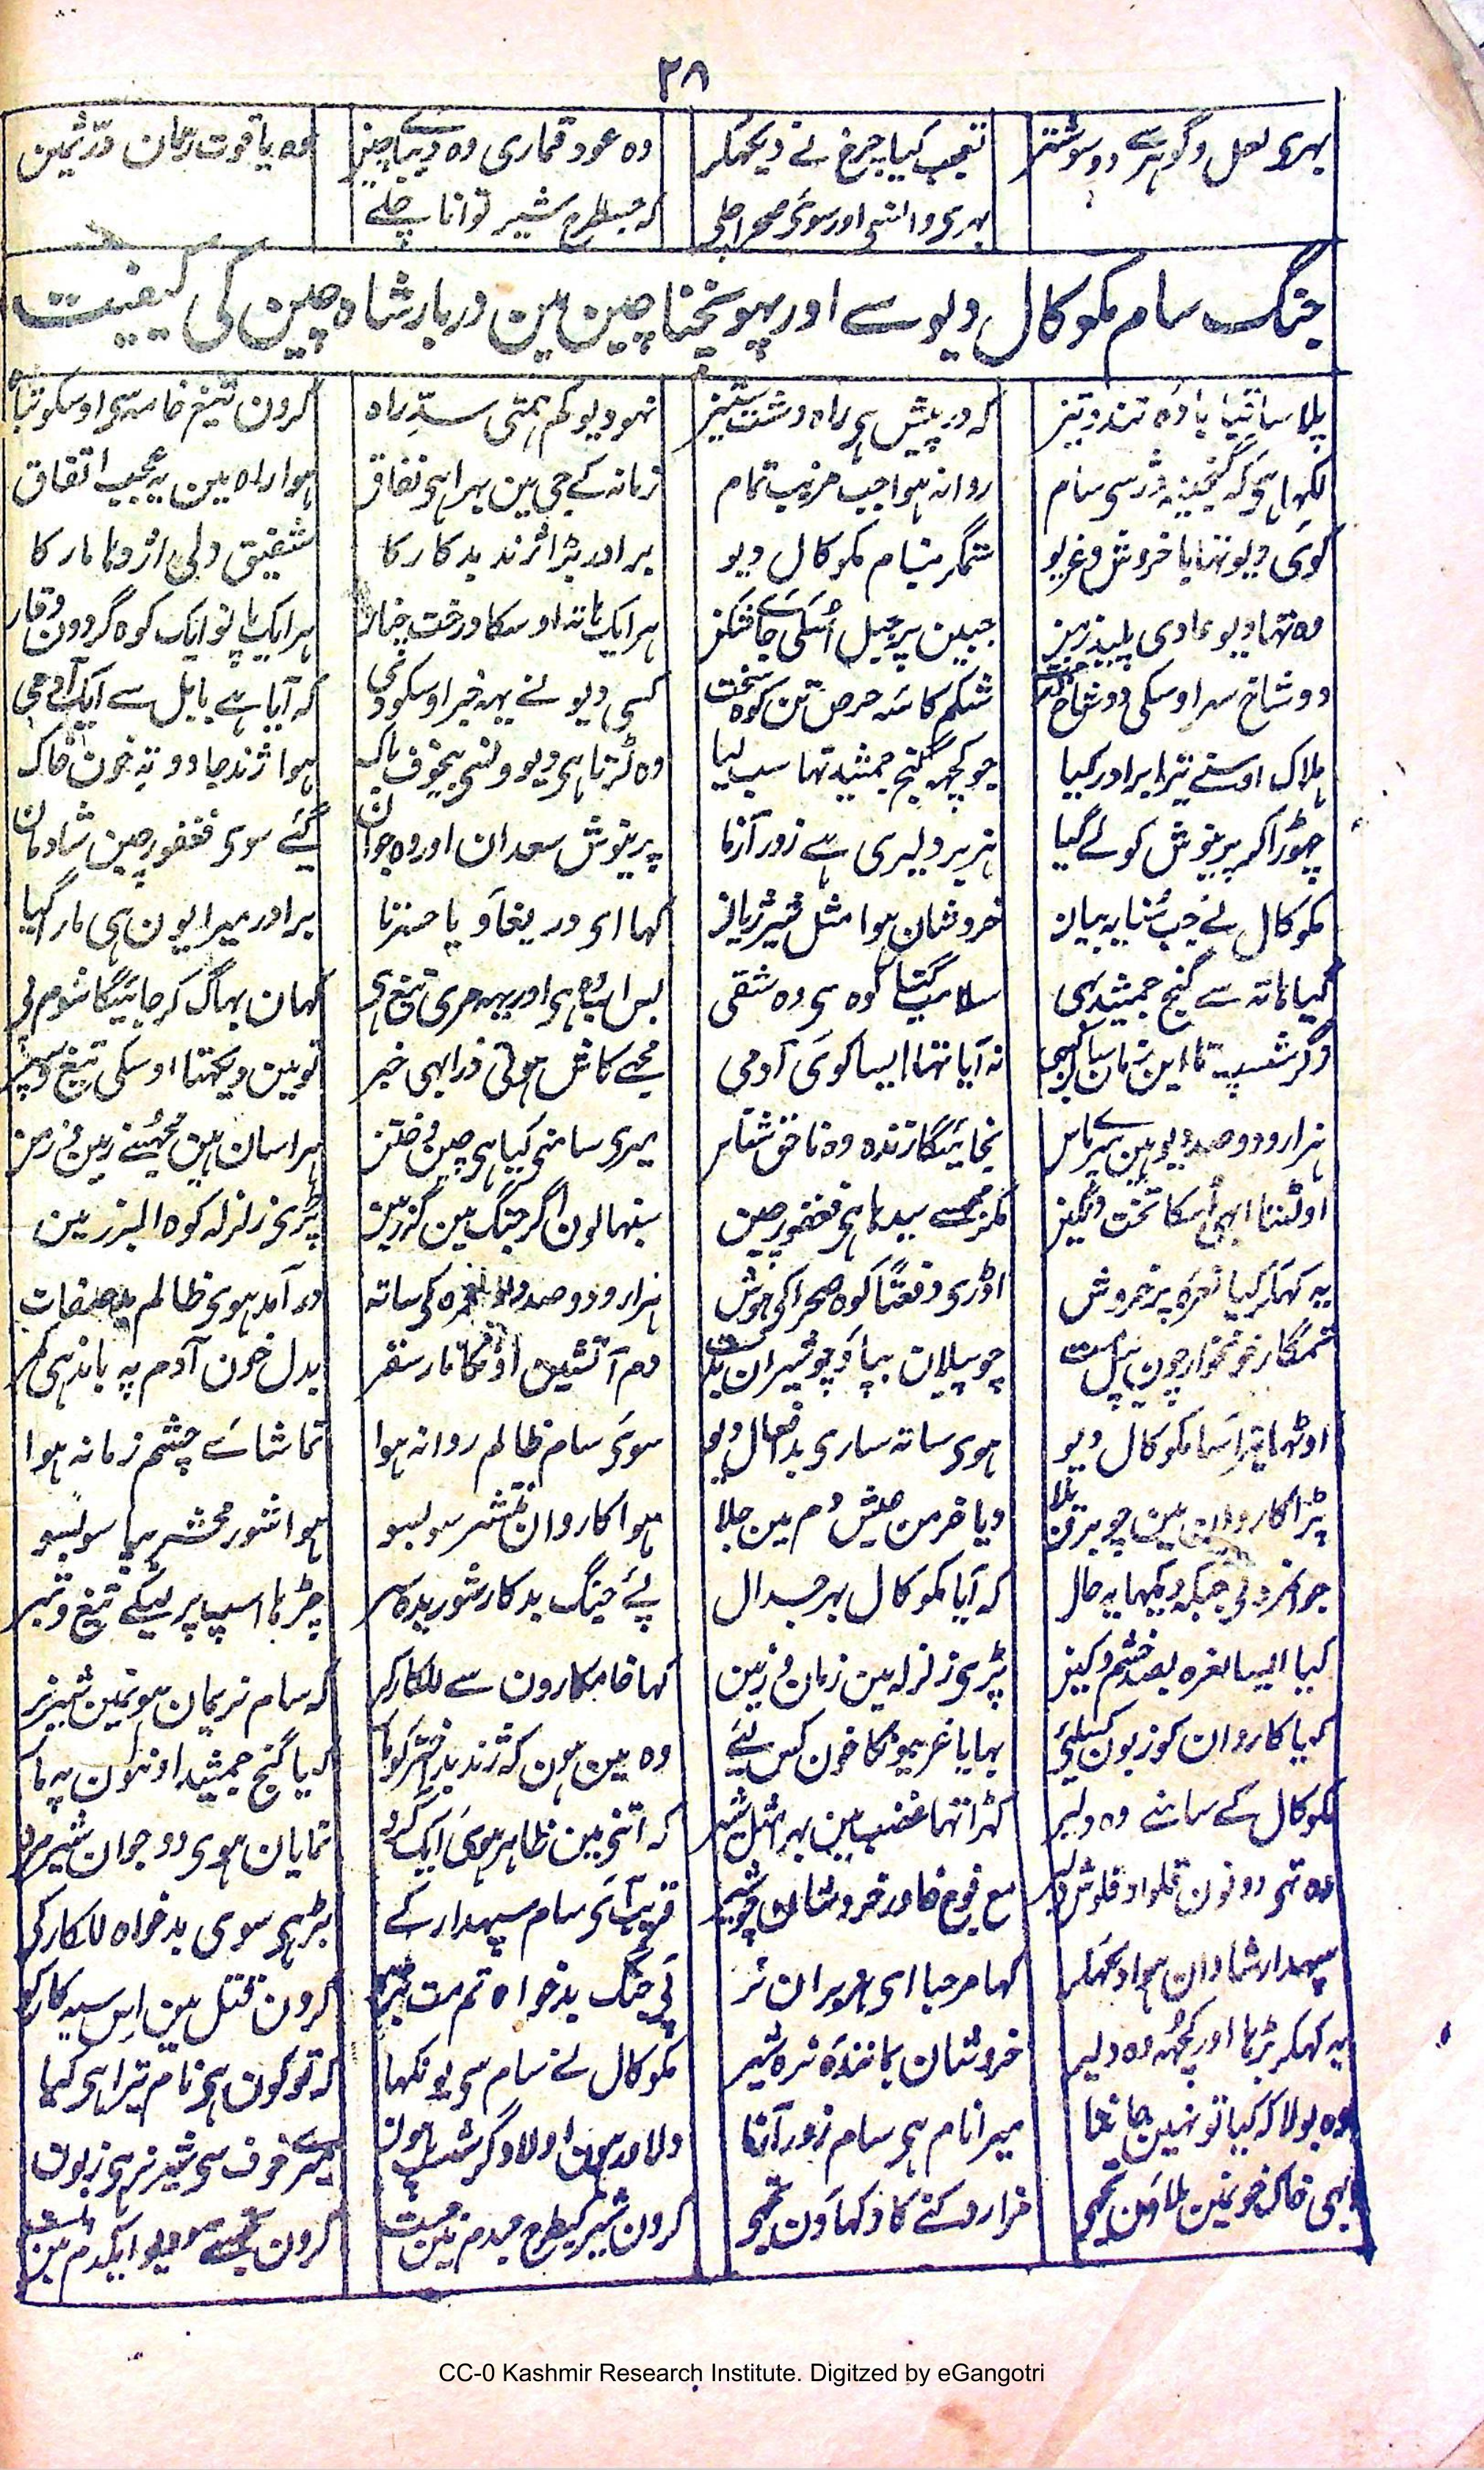 ۲۸
بہری لعل و گوہر سے دو سو شتر تعجب کیا چرخ نے دیکھکر وہ عود قماری وہ دیبائے چین وہ یاقوت رمان در ثمین
بہری وانسی اور سوئی صحرا چلے کہ جسطرح شیر توانا چلے
جنگ سام مکوکال دیو سے اور پہونچنا چین مین دربار شاہ چین کی کیفیت
پلا ساقیا بادہ تند و تیز کہ در پیش ہی راہ دشت ستیز نہو دیو کم ہمتی سدِّ راہ کرون تیغ خامہ سی اوسکو تباہ
لکہا ہی کہ گنجینہ ژر سی سام روانہ ہوا جب مرتب تمام زمانہ کے جی مین بہرا ہی نفاق ہوا راہ مین یہ عجیب اتفاق
کوئی دیو تہا با خروش و غریو ستمگر بنام مکوکال دیو برادر بڑا ژند بدکار کا شفیق دلی اژدہا مار کا
وہ تہا دیو عادی پلید زمن جبین پر جبل اسکی جائے شکن ہر ایک ہاتہ اوسکا درخت چنار ہر ایک پانو ایک کوہ گردون وقار
دو شاخ سر اوسکی دو شاخ درخت شکم کاسہ حرص تن کوہ سخت کسی دیو نے یہہ خبر اوسکو دی کہ آیا ہے بابل سے ایک آدمی
ہلاک اوسنے تیرا برادر کیا جو کچہہ گنج جمشید تہا سب لیا وہ لڑتا ہی دیوونسی بیخوف و باک ہوا ژند جادو تہ خون خاک
چھوڑا کر پریوش کو لے گیا ہنر پر دلیری ہے زور آزما پریوش سعدان اور وہ جوان گئے سوی فغفور چین شادمان
مکوکال نے جب سنا یہ بیان خروشان ہوا مثل شیر ژیان کہا ای دریغا و یا حسرتا برادر میرا یون ہی مارا گیا
گیا ہاتہ سے گنج جمشید ہی سلامت گیا کوہ سی وہ شقی بس اب وہ ہی اور یہہ مری تیغ ہی کہان بہاگ کر جائیگا شوم پی
و گرشسپ تا این زمان یان کبہی نہ آیا تہا ایسا کوئی آدمی مجھے کاش ہوتی ذرا بہی خبر تو مین دیکہتا اوسکی تیغ و سپر
ہزار و دو صد دیو ہین میرے پاس نجائیگا زندہ وہ ناحق شناس میری سامنی کیا ہی چین و ختن ہراسان ہین مجہسے زمین و زمن
اولٹتا ابہی اسکا تخت و نگین مگر مجسے بیدہا ہی فغفور چین سنبہالون اگر جنگ مین گرز مین پڑی زلزلہ کوہ البرز مین
یہ کہکر کیا نعرہ پر خروش اڈری دفعتاً کوہ صحرا کی ہوش ہزار و دو صد نرہ کی ساتہ درآمد ہوی ظالم بد صفات
ستمگار خونخوار چون پیل مست چو پیلان بپا و چو شیران بدست دم آتشین اونکا نار سقر بدل خون آدم پہ باندہی کمر
اوٹہا مکوکال دیو ہوی ساتہ ساری بد افعال دیو سوئی سام ظالم روانہ ہوا تماشائے چشم زمانہ ہوا
پڑا کاروان مین چو برق بلا دیا خرمن عیش دم مین جلا ہوا کاروان منتشر سوبسو ہوا شور محشر بپا سوبسو
جوانمرد نے جبکہ دیکہا یہ حال کہ آیا مکوکال بہر جدال پئے جنگ بدکار شوریدہ سر چڑہا اسپ پر لیکے تیغ و تبر
کیا ایسا نعرہ بصد خشم و کین پڑی زلزلہ مین زمان و زمین کہا خامکارون سے للکار کر کہ سام نریمان ہون مین شیر نر
کیا کاروان کو زبون کسلئی بہایا غریبونکا خون کس لئے وہ مین ہون کہ ژند بد اختر کو مار لیا گنج جمشید اونٹون پہ بار
مکوکال کے سامنے وہ دلیر کہڑا تہا غضب مین بہر مثل شیر کہ اتنی مین ظاہر ہوئی ایک گرد نمایان ہوی دو جوان شیر مرد
وہ تہی دونون قلواد و قلوش دلیر مع فوج خاور خروشان چو شیر قریب آئے سام سپہدار کے بڑہی سوی بدخواہ للکار کی
سپہدار شادان ہوا دیکھکر کہا مرحبا ای ہزبران نر پی جنگ بدخواہ تم مت کرون قتل مین اس سیہ کار کو
یہ کہکر بڑہا اور کچہہ وہ دلیر خروشان بمانندہ نرہ شیر مکوکال نے سام سی یون کہا کہ تو کون ہی نام تیرا ہی کیا
وہ بولا کہ کیا تو نہین جانتا میرا نام ہی سام زور آزما دلاور ہون اولاد گرشسپ ہون میرے خوف سی شیر نر ہی زبون
ابہی خاک خون مین ملاؤن تجہی مزا روکنے کا دکہاؤن تجہی کرون شیر کیطرح